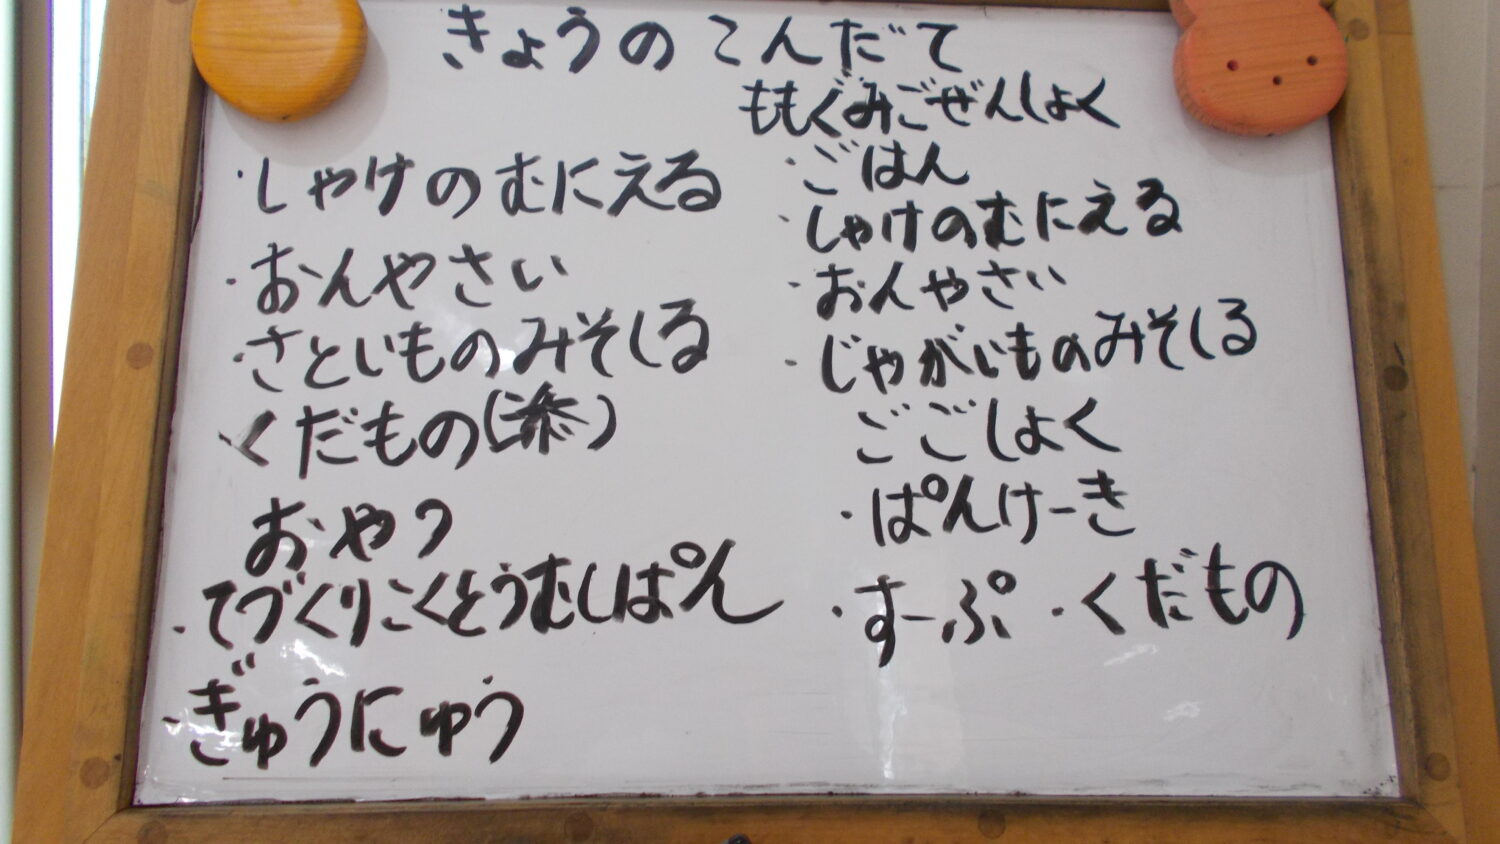 きょうのこんだて
・しゃけのむにえる
・おんやさい
・さといものみそしる
・くだもの(添)
おやつ
・てづくりこくとうむしぱん
・ぎゅうにゅう
ももぐみごぜんしょく
・ごはん
・しゃけのむにえる
・おんやさい
・じゃがいものみそしる
ごごしょく
・ぱんけーき
・すーぷ ・くだもの